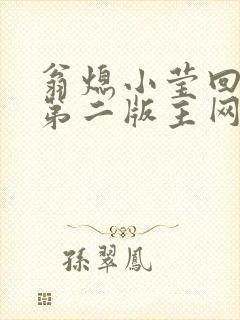 翁熄小莹回
第二版主网
孫翠鳳